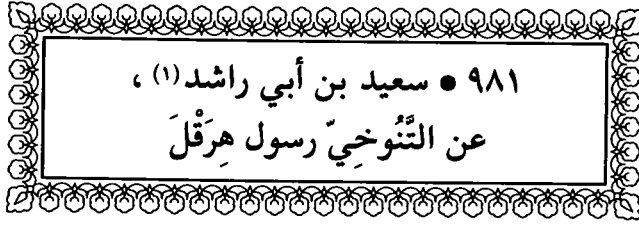 ٩٨١ • سعيد بن أبي راشد(١) ،
عن التَّنُوخِيّ رسول هِرَقْلَ